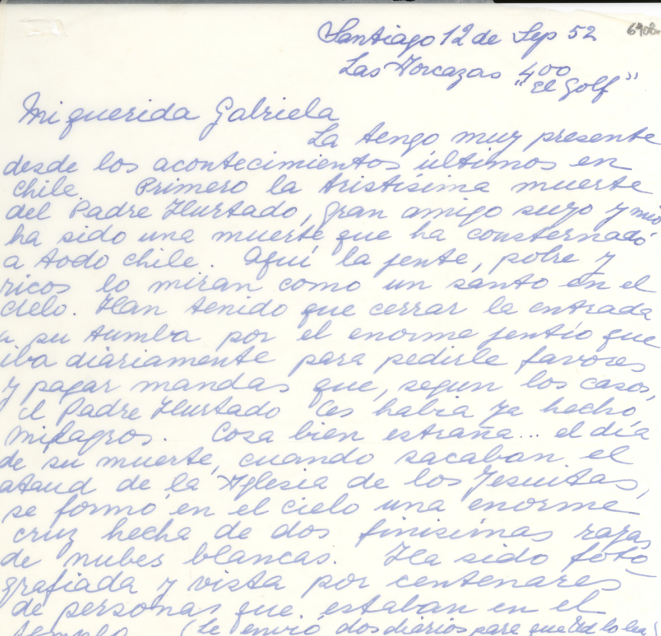 Santiago 12 de Sep 52
6908
Las Torcazas 400
"El Golf"
Mi querida Gabriela
La tengo muy presente
desde los acontecimientos últimos en
Chile. Primero la tristísima muerte
del Padre Hurtado, gran amigo suyo y mio
ha sido una muerte que ha consternado
a todo Chile. Aquí la jente, pobre y
ricos lo miran como un santo en el
cielo. Han tenido que cerrar la entrada
a su tumba por el enorme jentio que
iba diariamente para pedirle favores
y pagar mandas que, segun los casos,
el Padre Hurtado les habia ya hecho
milagros. Cosa bien estraña... el día
de su muerte, cuando sacaban el
ataud de la Yglesia de los Jesuitas,
se formó en el cielo una enorme
cruz hecha de dos finisimas rayas
de nubes blancas. Ha sido foto
grafiada y vista por centenares
de personas que estaban en el
templo (Le envió dos diarios para que Ud lo lea)